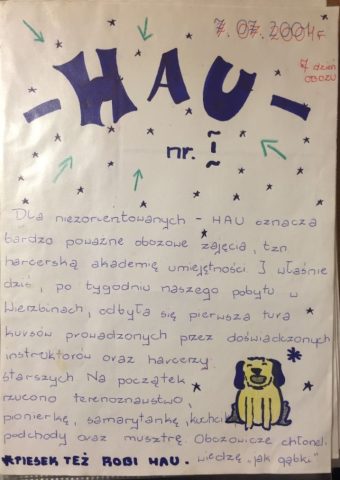 7.07.2004r
7 dzień
OBOZU
-HAU-
nr. 1
Dla niezorientowanych - HAU oznacza
bardzo poważne obozowe zajęcia, tzn.
harcerską akademię umiejętności. I właśnie
dziś, po tygodniu naszego pobytu w
Wierzbinach, odbyła się pierwsza tura
kursów prowadzonych przez doświadczonych
instruktorów oraz harcerzy
starszych. Na początek
rzucono terenoznawstwo,
pionierkę, samarytankę,
podchody oraz musztrę. Obozowicze chłonęli
*PIESEK TEŻ ROBI HAU. wiedzę "jak gąbki"